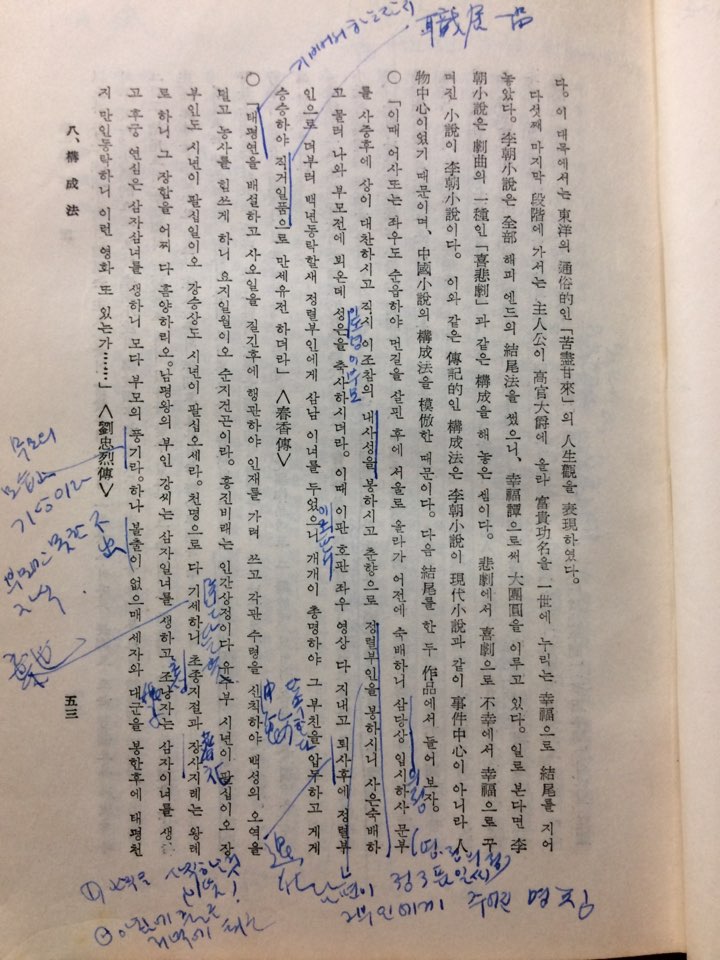 다。이 대목에서는 東洋의 通俗的인「苦盡甘來」의 人生觀을 表現하였다。
다섯째 마지막 段階에 가서는 主人公이 高官大爵에 올라 富貴功名을 一世에 누리는 幸福으로 結尾를 지어
놓았다。李朝小說은 全部 해피 엔드의 結尾法을 썼으니、幸福譚으로써 大團圓을 이루고 있다。일로 본다면 李
朝小說은 劇曲의 一種인「喜悲劇」과 같은 構成을 해 놓은 셈이다。 悲劇에서 喜劇으로 不幸에서 幸福으로 꾸
며진 小說이 李朝小說이다。 이와 같은 傳記的인 構成法은 李朝小說이 現代小說과 같이 事件中心이 아니라 人
物中心이었기 때문이며、中國小說의 構成法을 模倣한 때문이다。다음 結尾를 한두 作品에서 들어 보자。
○「이때 어사또는 좌우도 순읍하야 민정을 살핀 후에 서울로 올라가 어전에 숙배하니 삼당상 입시하사 문부
를 사증후에 상이 대찬하시고 직시 이조참의 대사성을 봉하시고 춘향으로 정렬부인을 봉하시니 사은숙배하
고 물러 나와 부모전에 뵈온데 성은을 축사하시더라。이때 이판 호판 좌우 영상 다 지내고 퇴사후에 정렬부
인으로 더부러 백년동락할새 정렬부인에게 삼남 이녀를 두었으니 개개이 총명하야 그 부친을 압두하고 계계
승승하야 직거일품으로 만세유전 하더라」〈春香傳〉
○「태평연을 배설하고 사오일을 질긴후에 행관하야 인재를 가려 쓰고 각관 수령을 신칙하야 백성의 오역을
덜고 농사를 힘쓰게 하니 요지일월이오 순지건곤이라。흥진비래는 인간상정이다 유주부 시년이 팔십이오 장
부인도 시년이 팔십일이오 강승상도 시년이 팔십오세라。천명으로 다 기세하니 초종지절과 장사지례는 왕례
로 하니 그 장함을 어찌 다 흠양하리오。남평왕의 부인 강씨는 삼자일녀를 생하고 조낭자는 삼자이녀를 생하
고 후궁 연심은 삼자삼녀를 생하니 모다 부모의 풍기라。하나 불출이 없으매 세자와 대군을 봉한후에 태평천
지 만인동락하니 이런 영화 또 있는가……」〈劉忠烈傳〉
八、構成法
五三
職居一品